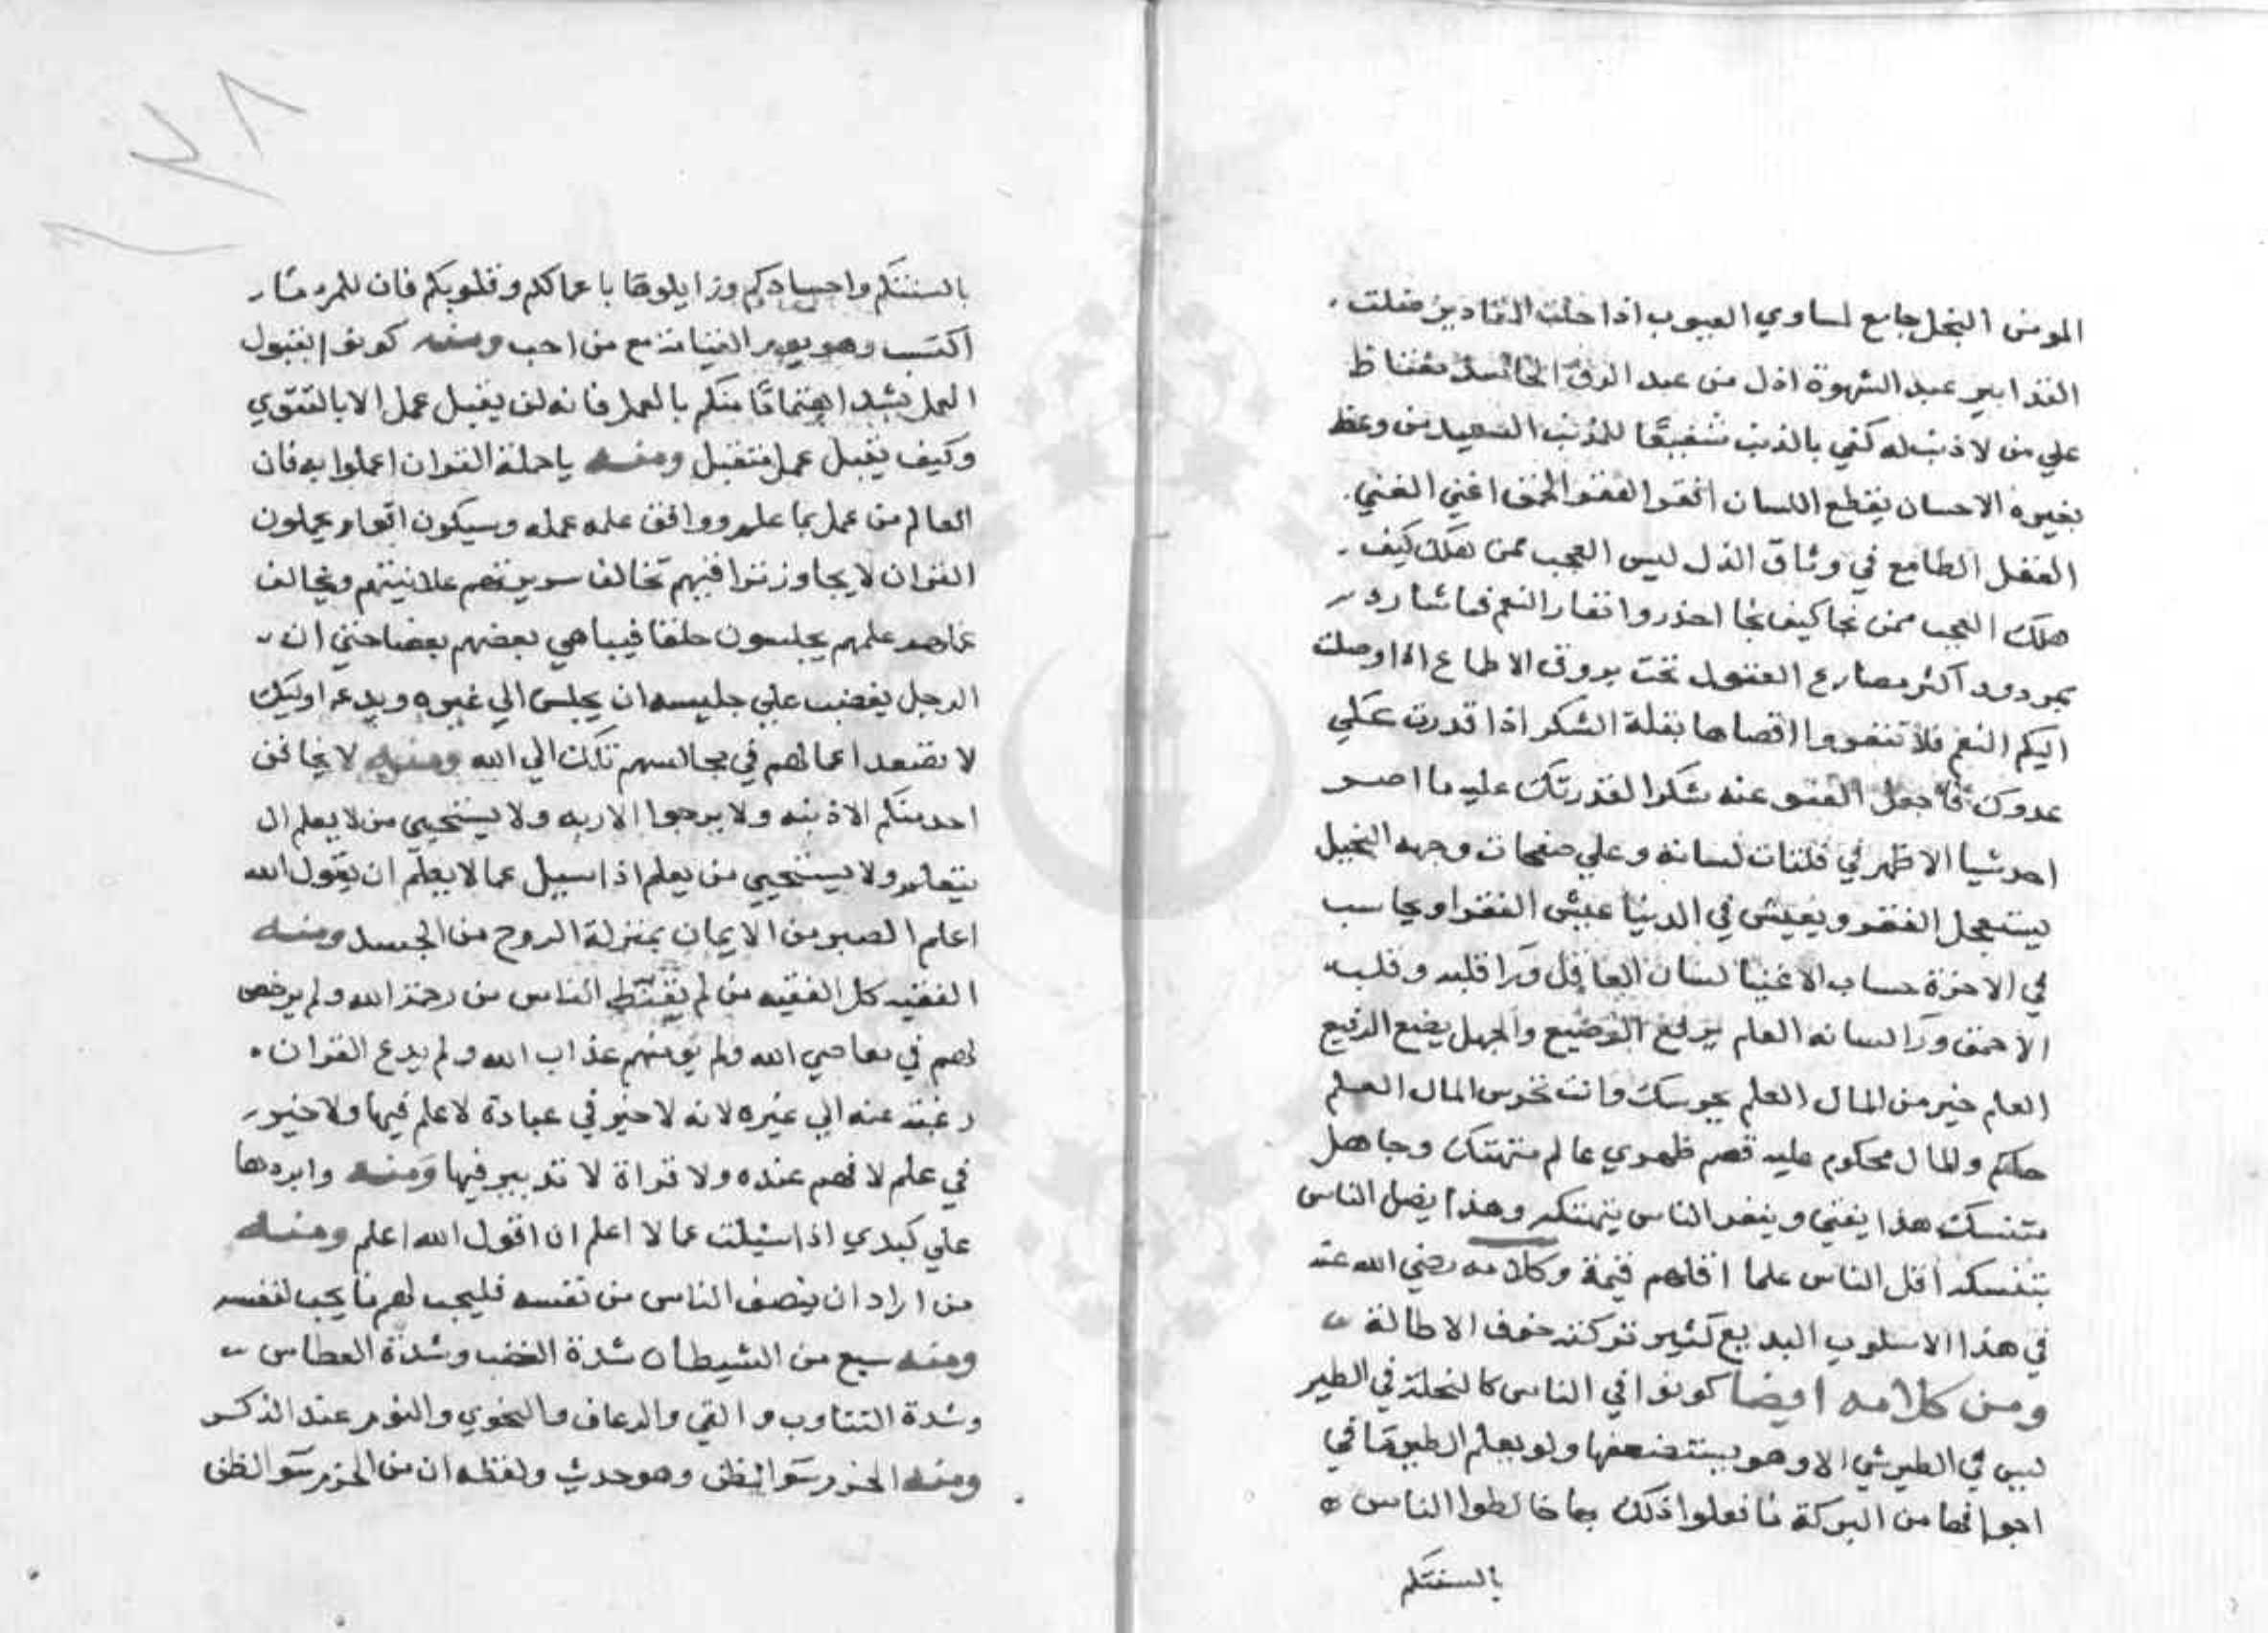 المومن البخل جامع لمساوي العيوب اذا حلت المقادير ضلت
التدابير عبد الشهوة اذل من عبد الرق الحاسد مغتاظ
علي من لا ذنب له كفي بالذنب شفيعا للمذنب السعيد من وعظ
بغيره الاحسان يقطع اللسان افقر الفقر الحمق اغني الغني
العقل الطامع في وثاق الذل ليس العجب ممن هلك كيف
هلك العجب ممن نجا كيف نجا احذروا نفار النعم فما شارد
بمردود اكثر مصارع العقول تحت بروق الاطماع اذا وصلت
اليكم النعم فلا تنفروا اقصاها بقلة الشكر اذا قدرت علي
عدوك فاجعل العفو عنه شكرا لقدرتك عليه ما اضمر
احد شيا الا ظهر في فلتات لسانه وعلي صفحات وجهه البخيل
يستعجل الفقر ويعيش في الدنيا عيش الفقرا ويحاسب
في الاخرة حساب الاغنيا لسان العاقل ورا قلبه وقلب
الاحمق ورا لسانه العلم يرفع الوضيع والجهل يضع الرفيع
العلم خير من المال العلم يحرسك وانت تحرس المال العلم
حاكم والمال محكوم عليه قصم ظهري عالم متهتك وجاهل
متنسك هذا يفتي وينفر الناس بتهتكه وهذا يضل الناس
بتنسكه اقل الناس علما اقلهم قيمة وكلامه رضي الله عنه
في هذا الاسلوب البديع كثير تركته خوف الاطالة
ومن كلامه ايضا كونوا في الناس كالنحلة في الطير
ليس في الطير شي الا وهو يستضعفها ولو يعلم الطير ما في
اجوافها من البركة ما فعلوا ذلك بها خالطوا الناس
بالسنتكم
بالسنتكم واجسادكم وزايلوها باعمالكم وقلوبكم فان للمرء ما
اكتسب وهو يوم القيامة مع من احب ومنه كونوا بقبول
العمل اشد اهتماما منكم بالعمل فانه لن يقبل عمل الا بالتقوي
وكيف يقبل عمل متقبل ومنه ياحملة القران اعملوا به فان
العالم من عمل بما علم ووافق علمه عمله وسيكون اقوام يحملون
القران لا يجاوز تراقيهم تخالف سريرتهم علانيتهم ويخالف
عملهم علمهم يجلسون حلقا فيباهي بعضهم بعضا حتي ان
الرجل يغضب علي جليسه ان يجلس الي غيره ويدعه اوليك
لا تصعد اعمالهم في مجالسهم تلك الي الله ومنه لا يخافن
احد منكم الا ذنبه ولا يرجوا الا ربه ولا يستحيي من لا يعلم ان
يتعلم ولا يستحيي من يعلم اذا سيل عما لا يعلم ان يقول الله
اعلم الصبر من الايمان بمنزلة الروح من الجسد ومنه
الفقيه كل الفقيه من لم يقنط الناس من رحمة الله ولم يرخص
لهم في معاصي الله ولم يومنهم عذاب الله ولم يدع القران
رغبة عنه الي غيره لانه لا خير في عبادة لا علم فيها ولا خير
في علم لا فهم عنده ولا قراة لا تدبر فيها ومنه وابردها
علي كبدي اذا سيلت عما لا اعلم ان اقول الله اعلم ومنه
من اراد ان ينصف الناس من نفسه فليحب لهم ما يحب لنفسه
ومنه سبع من الشيطان شدة الغضب وشدة العطاس
وشدة التثاوب والقي والرعاف والنجوي والنوم عند الذكر
ومنه الحزم سو الظن وهو حديث ولفظه ان من الحزم سو الظن